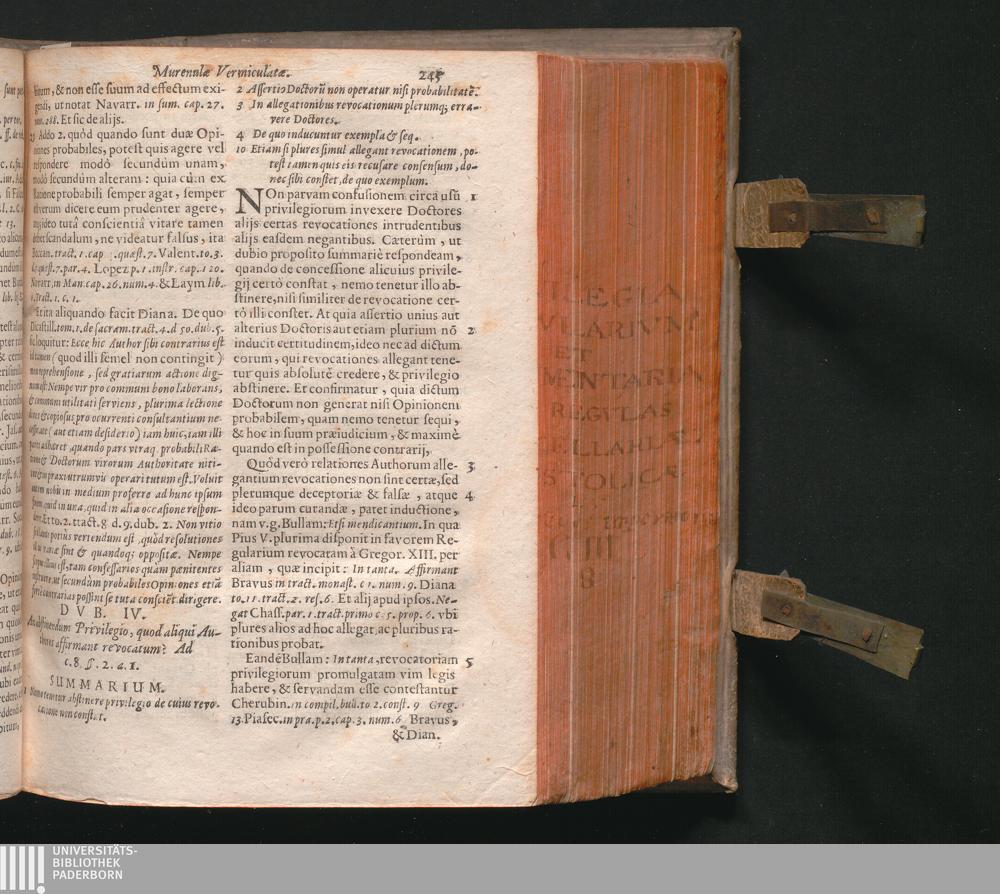 Murenulæ Vermiculatæ. 245
& non esse suum ad effectum exi-
gendi, ut notat Navarr. in sum. cap. 27.
num. 288. Et sic de alijs.
Addo 2. quòd quando sunt duæ Opi-
niones probabiles, potest quis agere vel
respondere modò secundùm unam,
modò secundùm alteram: quia cùm ex
Ratione probabili semper agat, semper
dicere eum prudenter agere,
ideo tutâ conscientiâ vitare tamen
debet scandalum, ne videatur falsus, ita
tract. 1. cap. quæst. 7. Valent. to. 3.
quæst. 7. par. 4. Lopez p. 1. instr. cap. 120.
Navarr. in Man. cap. 26. num. 4. & Laym lib.
1. Tract. 1. c. 1.
Et ita aliquando facit Diana. De quo
Dicastill. tom. 1. de sacram. tract. 4. d 50. dub. 5.
loquitur: Ecce hic Author sibi contrarius est
(quod illi semel non contingit)
reprehensione, sed gratiarum actione dig-
num est: Nempe vir pro communi bono laborans,
& communi utilitati serviens, plurima lectione
& copiosus pro ocurrenti consultantium ne-
cessitate (aut etiam desiderio) iam huic, iam illi
parti adhæret, quando pars utraq; probabili Ra-
tione & Doctorum virorum Authoritate niti-
tur & in praxi utrumvis operari tutum est. Voluit
nobis in medium proferre ad hunc ipsum
finem, quid in una, quid in alia occasione respon-
Et to. 2. tract. 8. d. 9. dub. 2. Non vitio
potius vertendum est, quòd resolutiones
variæ sint & quandoq; oppositæ. Nempe
est, tam confessarios quàm pœnitentes
ut secundùm probabiles Opiniones etiã
fortè contrarias possint se tuta conscient. dirigere.
DVB. IV.
An abstinendum Privilegio, quod aliqui Au-
thores affirmant revocatum? Ad
c. 8. ſſ. 2. a. 1.
SUMMARIUM.
1 Nemo tenetur abstinere privilegio de cuius revo-
catione non const. t.
2 Assertio Doctorũ non operatur nisi probabilitatẽ.
3 In allegationibus revocationum plerumq; erra-
vere Doctores.
4 De quo inducuntur exempla & seq.
10 Etiam si plures simul allegant revocationem, po-
test tamen quis eis recusare consensum, do-
nec sibi constet, de quo exemplum.
NOn parvam confusionem circa usũ 1
privilegiorum invexere Doctores
alijs certas revocationes intrudentibus
alijs easdem negantibus. Cæterùm, ut
dubio proposito summariè respondeam,
quando de concessione alicuius privile-
gij certò constat, nemo tenetur illo ab-
stinere, nisi similiter de revocatione cer-
tò illi constet. At quia assertio unius aut
alterius Doctoris aut etiam plurium nõ 2
inducit certitudinem, ideo nec ad dictum
eorum, qui revocationes allegant tene-
tur quis absolutè credere, & privilegio
abstinere. Et confirmatur, quia dictum
Doctorum non generat nisi Opinionem
probabilem, quam nemo tenetur sequi,
& hoc in suum præiudicium, & maximè
quando est in possessione contrarij,
Quòd verò relationes Authorum alle- 3
gantium revocationes non sint certæ, sed
plerumque deceptoriæ & falsæ, atque 4
ideo parum curandæ, patet inductione,
nam v. g. Bullam: Etsi mendicantium. In qua
Pius V. plurima disponit in favorem Re-
gularium revocatam à Gregor. XIII. per
aliam, quæ incipit: In tanta. Affirmant
Bravus in tract. monast. c 1. num. 9. Diana
to. 11. tract. 2. res. 6. Et alij apud ipsos. Ne-
gat Chass. par. 1. tract. primo c. 5. prop. 6. vbi
plures alios ad hoc allegat, ac pluribus ra-
tionibus probat.
Eandẽ Bullam: In tanta, revocatoriam 5
privilegiorum promulgatam vim legis
habere, & servandam esse contestantur
Cherubin. in compil. bull. to 2. const. 9 Greg.
13. Piasec. in pra. p. 2. cap. 3. num. 6 Bravus,
& Dian.
ILEGIA
VLARIVM
ET
MENTARIA
REGVLAS
ELLARIÆ
STOLICÆ
UNIVERSITÄTS-
BIBLIOTHEK
PADERBORN